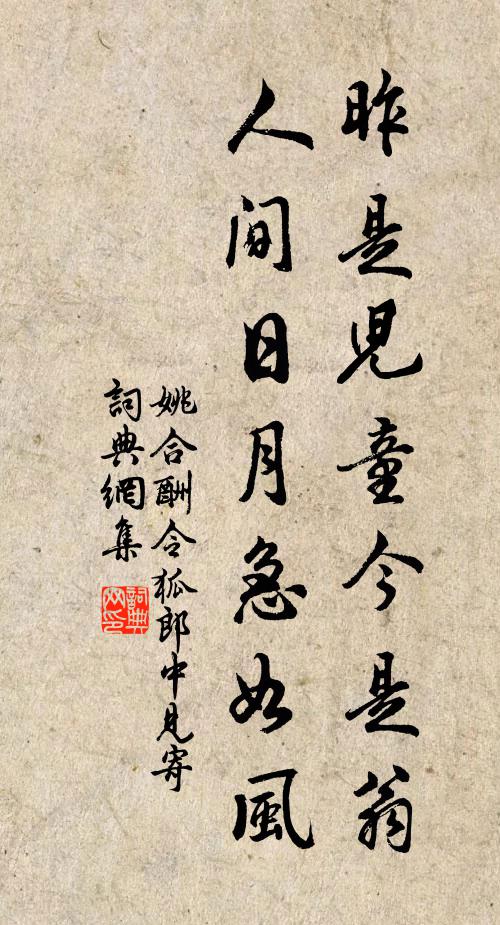 昨是兒童今是翁
人间日月急如風
姚合酬令狐郎中見寄
詞典網集
詞典网印